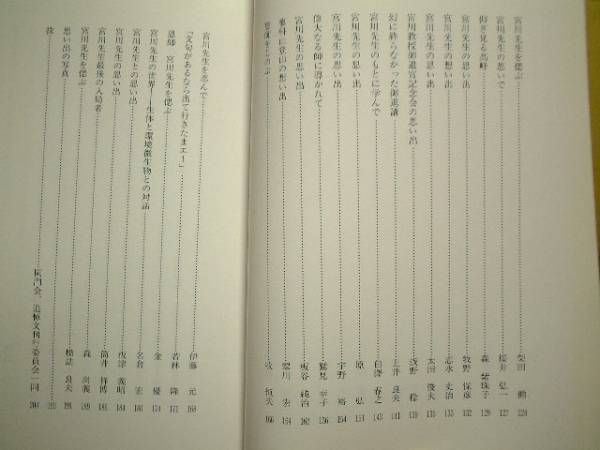 宮川先生を偲ぶ 柴田 勳 124
宮川先生の思いで 桜井 弘一 127
仰ぎ見る高峰 森 瑤珠子 129
宮川先生の思い出 牧野 保彦 132
宮川先生の想い出 志水 丈治 133
宮川先生の思い出 太田 俊夫 135
宮川教授御退官記念会の思い出 浅野 稔
幻に終らなかった御進講 土井 良夫 141
宮川先生のもとに学んで 白澤 春之 143
宮川先生の思い出 原 弘 151
宮川先生の想い出 宇野 裕 154
偉大なる師に導かれて 鷲見 幸子 156
宮川先生の思い出 板谷 純治 162
蓼科に登山の想い出 翠川 宏 164
牧 恒夫 166
宮川先生を忍んで 伊藤 元 168
「文句があるなら出て行きたまエ！」 若林 隆 171
恩師 宮川先生を偲ぶ 金 優 174
宮川先生の世界――生体と環境微生物との対話 名倉 宏 180
宮川先生との思い出 坂津 義昭 184
宮川先生の思い出 筒井 祥博 185
宮川先生最後の入局者 森 尚義 189
宮川先生を偲ぶ 楠誌 良夫 191
思い出の写真 195
跋 同門会、追悼文刊行委員会一同 200